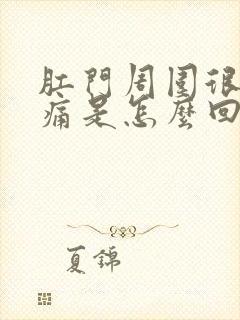 肛門周圍很
痛是怎麼回
夏錦